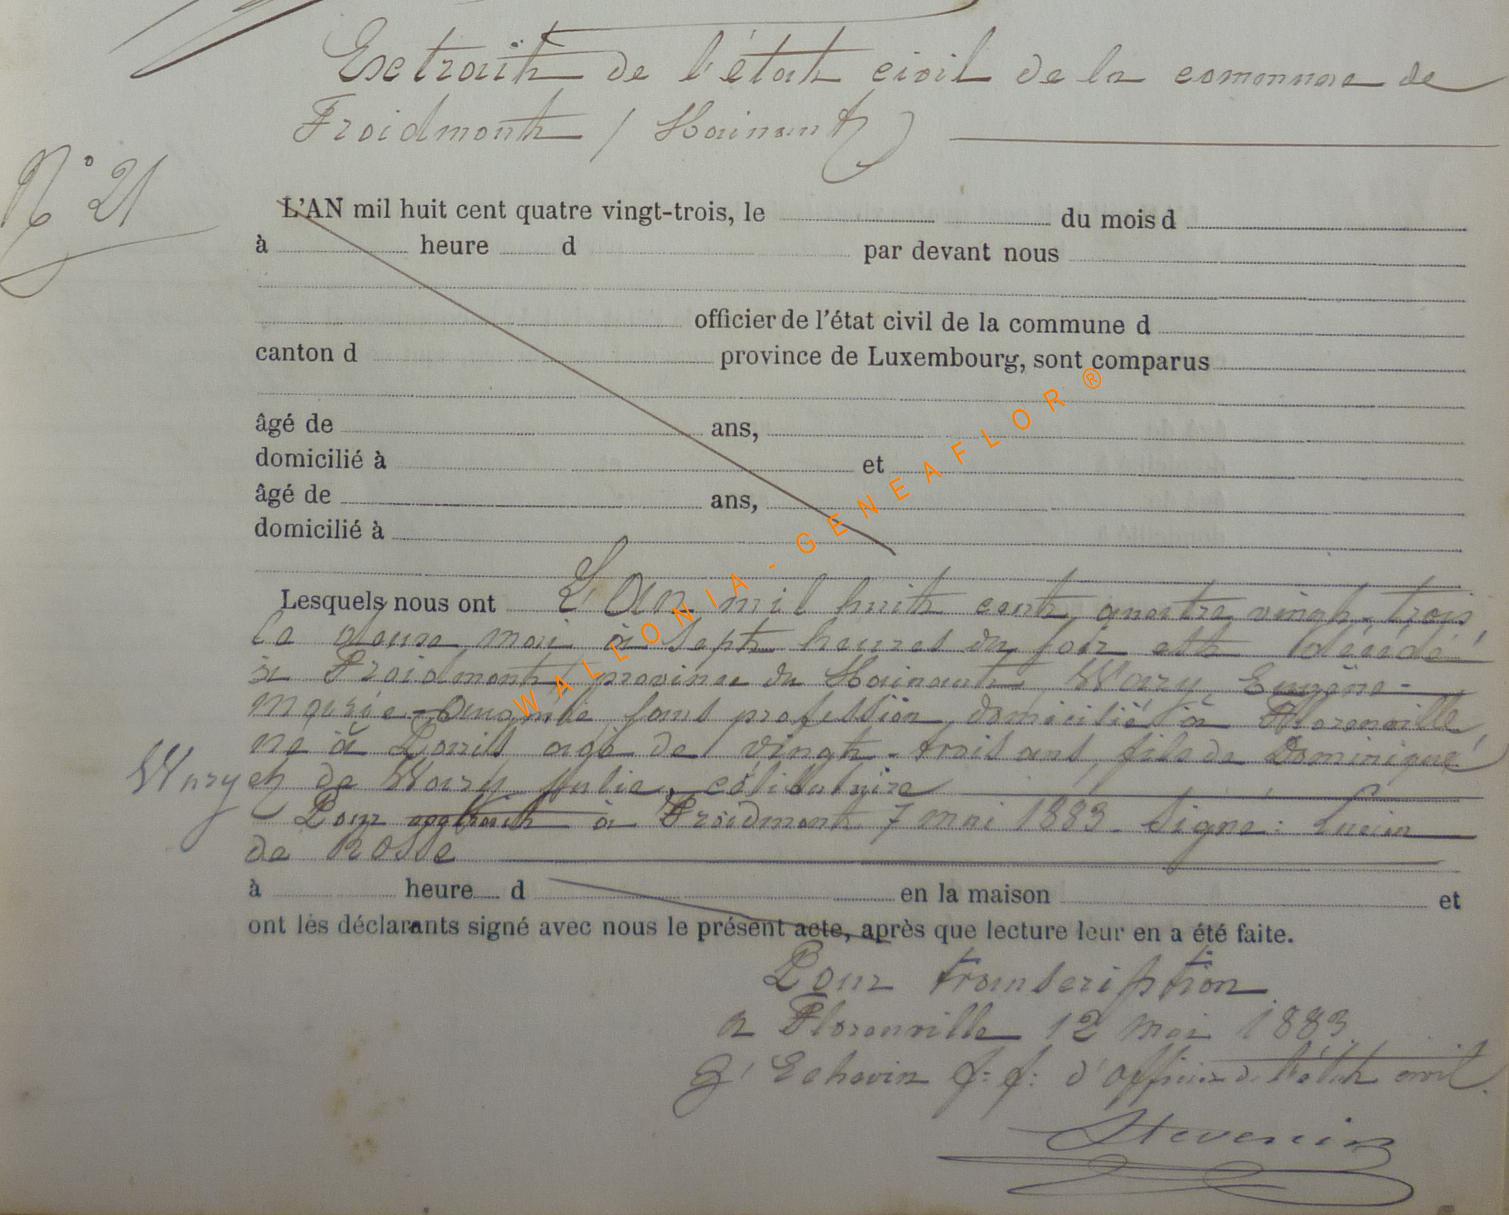 Extrait de l'état civil de la commune de
Froidmont (Hainaut)
N° 21
L'AN mil huit cent quatre vingt-trois, le du mois d
à heure d par devant nous
officier de l'état civil de la commune d
canton d province de Luxembourg, sont comparus
âgé de ans,
domicilié à et
âgé de ans,
domicilié à
Lesquels nous ont L'an mil huit cent quatre vingt-trois
le mai à sept heures du soir est décédé
à Froidmont province du Hainaut Wary, Eugène-
Marie-Auguste sans profession, domicilié à Florenville
né à Paris agé de vingt-trois ans, fils de Dominique
Wary et de Wary Julie, célibataire
Pour extrait à Froidmont 7 mai 1883. Signé: Lucien
de Rosse
à heure d en la maison et
ont les déclarants signé avec nous le présent acte, après que lecture leur en a été faite.
Pour transcription
à Florenville 12 mai 1883
L'Echevin f.f. d'officier de l'état civil
Stevenin
WALLONIA - GENEAFLOR ®